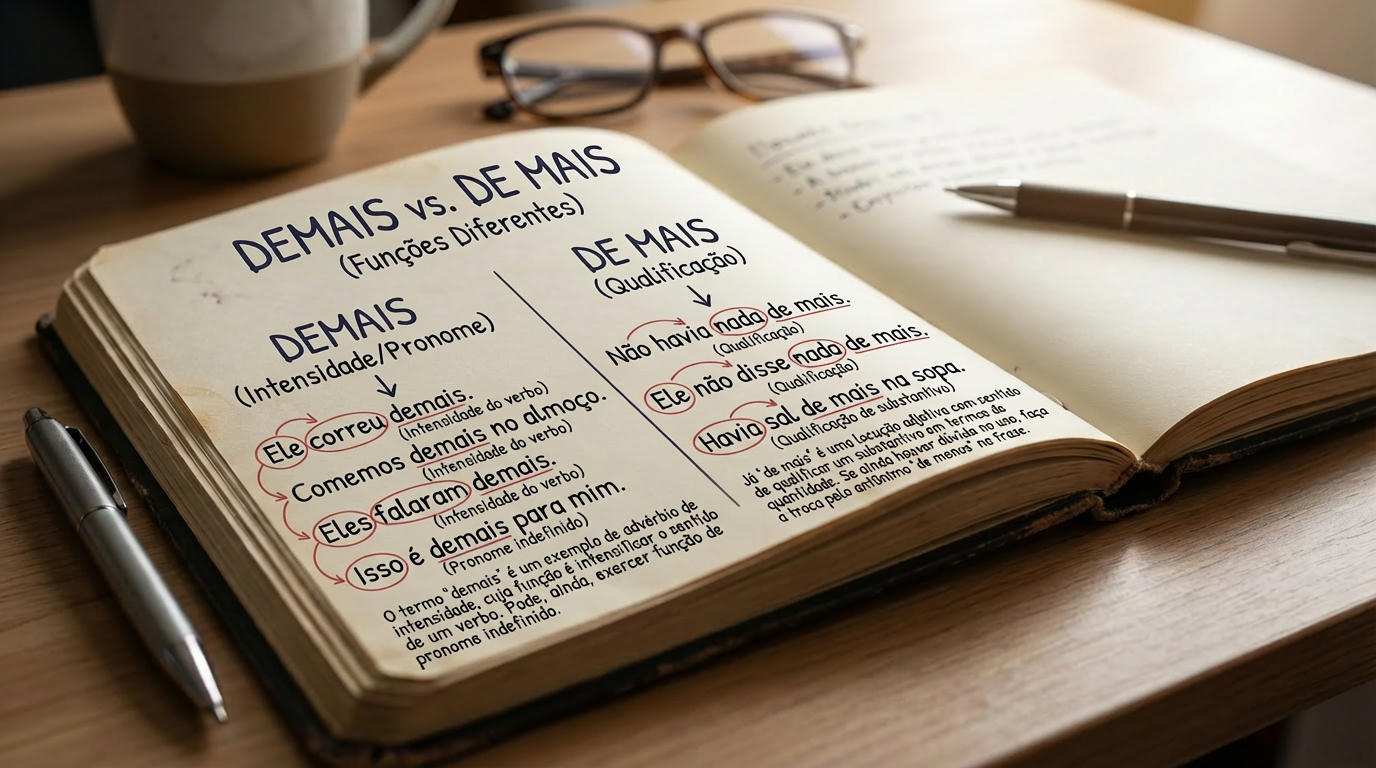 DEMAIS vs. DE MAIS
(Funções Diferentes)
DEMAIS
(Intensidade/Pronome)
Ele correu demais.
(Intensidade do verbo)
Comemos demais no almoço.
(Intensidade do verbo)
Eles falaram demais.
(Intensidade do verbo)
Isso é demais para mim.
(Pronome indefinido)
O termo "demais" é um exemplo de advérbio de
intensidade, cuja função é intensificar o sentido
de um verbo. Pode, ainda, exercer função de
pronome indefinido.
DE MAIS
(Qualificação)
Não havia nada de mais.
(Qualificação)
Ele não disse nada de mais.
(Qualificação)
Havia sal de mais na sopa.
(Qualificação de substantivo)
Já "de mais" é uma locução adjetiva com sentido
de qualificar um substantivo em termos de
quantidade. Se ainda houver dúvida no uso, faça
a troca pelo antônimo "de menos" na frase.